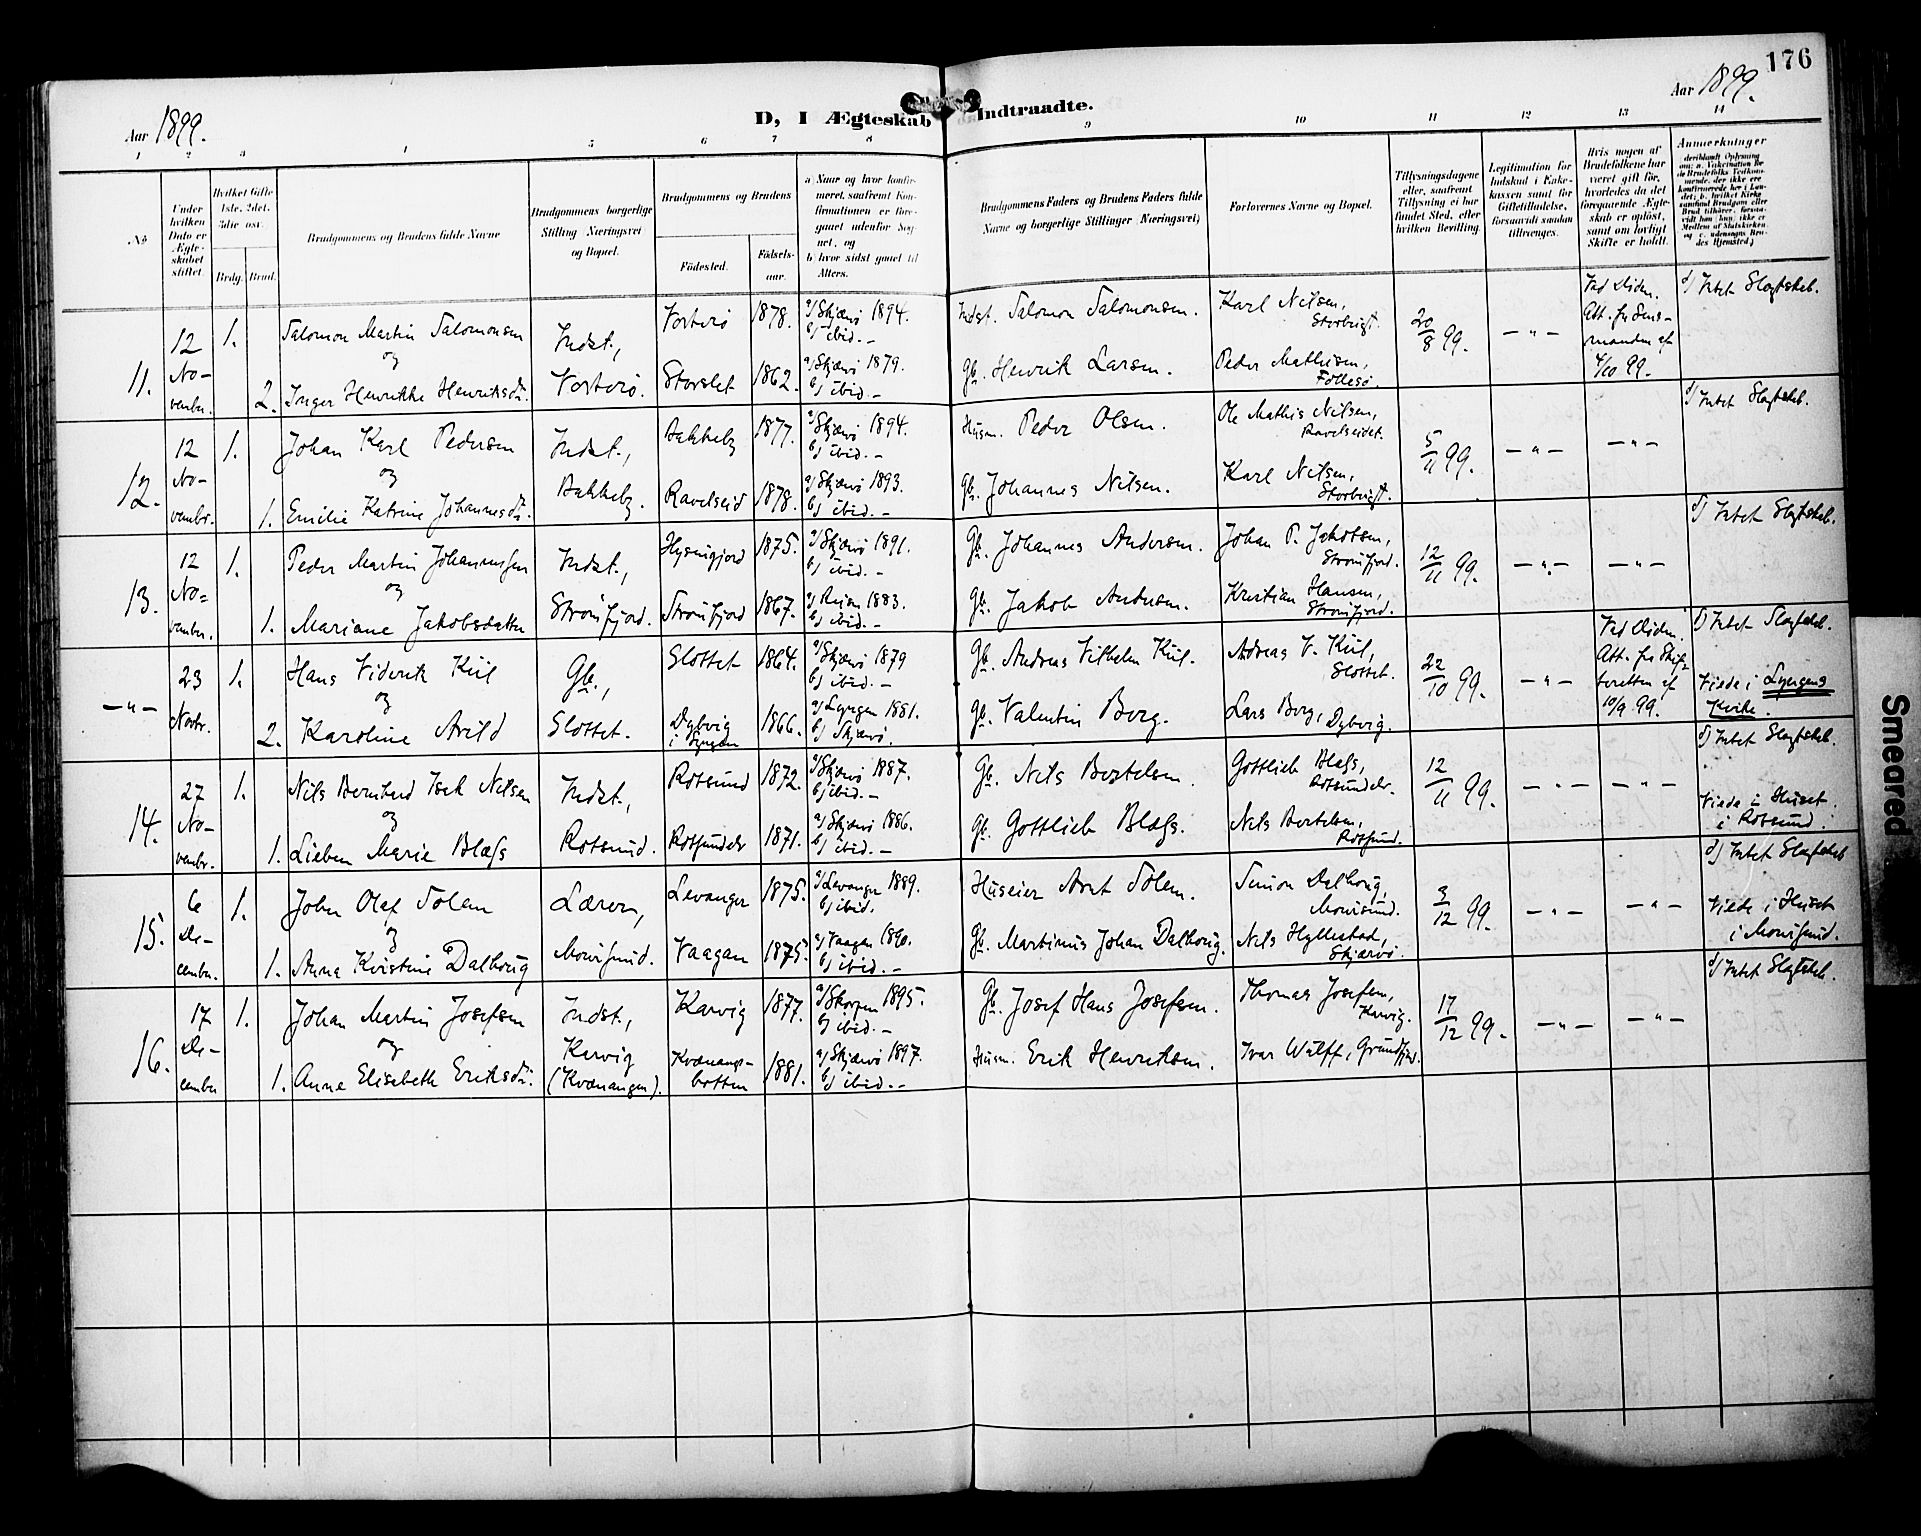 176
Aar 1899.
D, I Ægteskab Indtraadte.
Aar 1899.
1 2 3 4 5 6 7 8 9 10 11 12 13 14
No
Under hvilken Dato er Ægteskabet stiftet.
Hvilket Gifte 1ste, 2det, 3die osv.
Brdg. Brud.
Brudgommens og Brudens fulde Navne
Brudgommens borgerlige Stilling Næringsvei og Bopæl.
Brudgommens og Brudens
Födested.
Födselsaar.
a) Naar og hvor konfirmeret, saafremt Konfirmationen er foregaaet udenfor Sognet, og
b) hvor sidst gaaet til Alters.
Brudgommens Faders og Brudens Faders fulde Navne og borgerlige Stillinger (Næringsvei)
Forlovernes Navne og Bopæl.
Tillysningsdagene eller, saafremt Tillysning ei har fundet Sted, efter hvilken Bevilling.
Legitimation for Indskud i Enkekassen samt for Giftetilladelse, forsaavidt saadan tiltrænges.
Hvis nogen af Brudefolkene har været gift för, hvorledes da det foregaaende Ægteskab er oplöst, samt om lovligt Skifte er holdt.
Anmærkninger
11.
12 November.
1.
Salomon Martin Salomonsen
og
2. Inger Henrikke Henriksdtr.
Indst., Vorterö.
Vorterö 1878.
a) Skjærvö 1894.
b) ibid.-
Storslet 1862.
a) Skjærvö 1879.
b) ibid.-
Indst. Salomon Salomonsen.
Gb. Henrik Larsen.
Karl Nilsen, Storbugt.
Peder Mathisen, Follesö.
20/8 99.
- " -
Ved Vidn. Att. fra Lensmanden af 4/10 99.
d) Intet Slægtskab.
12.
12 Novembr.
1.
Johan Karl Pedersen
og
1. Emilie Katrine Johannesdtr.
Indst., Bakkeby.
Bakkeby 1877.
a) Skjærvö 1894.
b) ibid.-
Ravelseid 1878.
a) Skjærvö 1893.
b) ibid.-
Husm. Peder Olsen.
Gb. Johannes Nilsen.
Ole Mathis Nilsen, Ravelseidet.
Karl Nilsen, Storbugt.
5/11 99.
- " -
- " -
d) Intet Slægtskab.
13.
12 November.
1.
Peder Martin Johannesen
og
1. Mariane Jakobsdatter
Indst., Straumfjord.
1875.
a) Skjærvö 1891.
b) ibid.-
Straumfjord 1867.
a) Reisen 1883.
b) ibid.-
Gb. Johannes Andersen.
Gb. Jakob Andersen.
Johan P. Jakobsen, Straumfjord.
Kristian Hansen, Straumfjord.
12/11 99.
- " -
- " -
d) Intet Slægtskab.
- " -
23 Novbr.
1.
Hans Viderik Kiil
og
2. Karoline Arild
Gb., Slottet.
Slottet 1864.
a) Skjærvö 1879
b) ibid.-
Dybvig i Lyngen 1866.
a) Lyngen 1881.
b) Skjærvö.
Gb. Andreas Vilhelm Kiil.
Gb. Valentin Borg.
Andreas V. Kiil, Slottet.
Lars Borg, Dybvig.
22/10 99.
- " -
Ved Vidn. Att. fra Skifteretten af 10/9 99.
d) Intet Slægtskab.
Viede i Lyngens Kirke.
14.
27 Novembr.
1.
Nils Bernhard Isak Nilsen
og
1. Lieben Marie Blæss
Indst., Rotsund.
Rotsund 1872.
a) Skjærvö 1887.
b) ibid.-
Rotsundelv 1871.
a) Skjærvö 1886.
b) ibid.-
Gb. Nils Bertelsen.
Gb. Gottlieb Blæss.
Gottlieb Blæss, Rotsundelv.
Nils Bertelsen, Rotsund.
12/11 99.
- " -
- " -
d) Intet Slægtskab.
Viede i Huset i Rotsund.
15.
6 December.
1.
John Olaf Solem
og
1. Anna Kristine Dalborg
Lærer, Maursund.
Levanger 1875.
a) Levanger 1889.
b) ibid.
Vaagan 1875.
a) Vaagan 1890.
b) ibid.-
Huseier Arnt Solem.
Gb. Martinus Johan Dalborg.
Simon Dalborg, Maursund.
Nils Hyllestad, Skjærvö.
3/12 99.
- " -
- " -
d) Intet Slægtskab
Viede i Huset i Maursund.
16.
17 December
1.
Johan Martin Josefsen
og
1. Anne Elisabeth Eriksdtr.
Indst., Karvig (Kvænangen).
Karvig 1877.
a) Skorpen 1895.
b) ibid.-
Kvænangsbotten 1881.
a) Skjærvö 1897.
b) ibid.-
Gb. Josef Hans Josefsen.
Husm. Erik Henriksen.
Thomas Josefsen, Karvig.
Ivar Wulff, Grundfjord.
17/12 99.
- " -
- " -
d) Intet Slægtskab.
Smeared